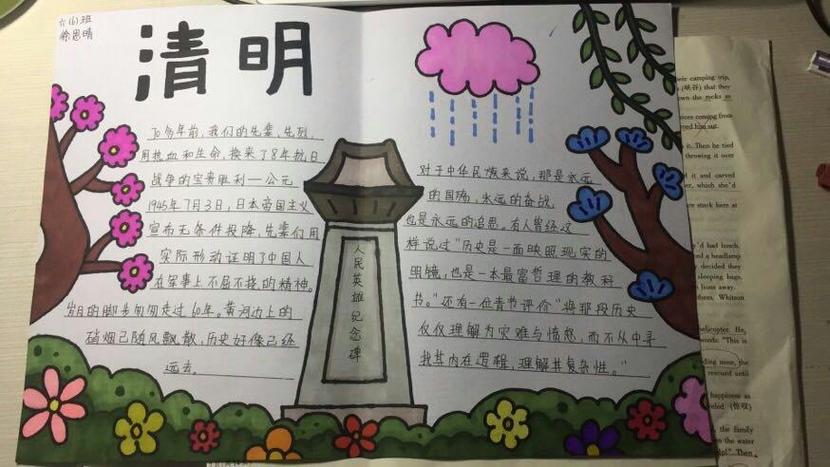 六(6)班
徐思晴
清明
70多年前，我们的先辈、先烈，
用热血和生命，换来了8年抗日
战争的宝贵胜利—公元
1945年7月3日，日本帝国主义
宣布无条件投降，先辈们用
实际形动证明了中国人
在军事上不屈不挠的精神。
岁月的脚步匆匆走过60年。黄河边上的
硝烟已随风飘散，历史好像已经
远去。
人民英雄纪念碑
对于中华民族来说，那是永远
的国殇，永远的奋战，
也是永远的追思。有人曾经这
样说过"历史是一面映照现实的
明镜，也是一本最富哲理的教科
书。"还有一位青节评价"将那段历史
仅仅理解为灾难与愤怒，而不从中寻
找其内在逻辑，理解其复杂性。"
their camping trip,
(峡谷) that they
down the rocks as
it. Then he tied
throwing it over
it and carved
'd had lunch.
a headlamp
they decided they
sleeping bags.
them. Whitson
helicopter. He,
"This is
rescued until
happiness as
the family
on the water
Then